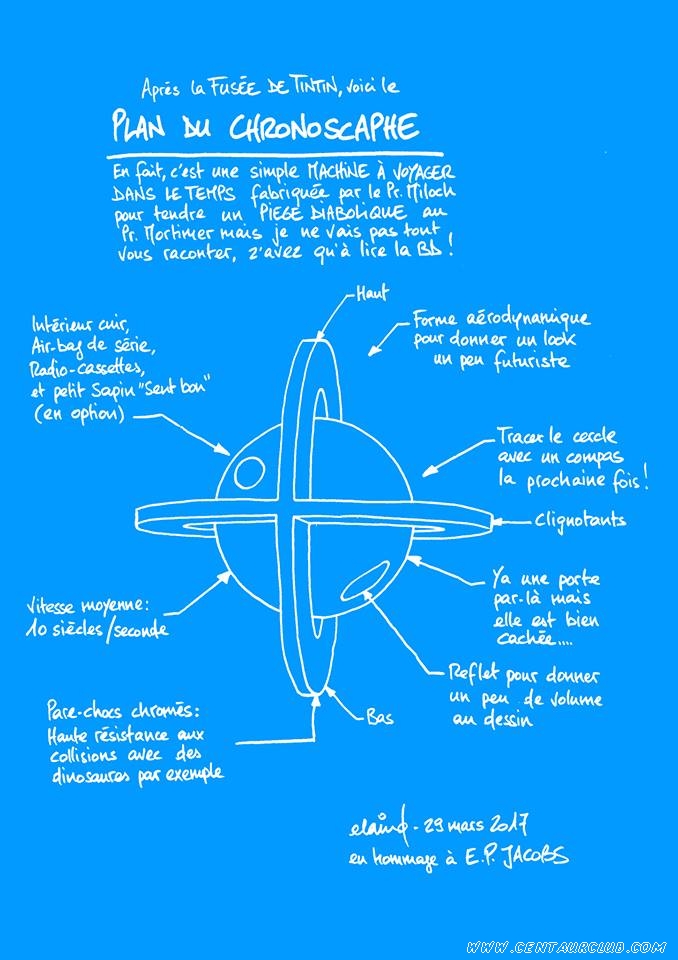 Après la FUSÉE DE TINTIN, voici le
PLAN DU CHRONOSCAPHE
En fait, c'est une simple MACHINE À VOYAGER
DANS LE TEMPS fabriquée par le Pr. Miloch
pour tendre un PIEGE DIABOLIQUE au
Pr. Mortimer mais je ne vais pas tout
vous raconter, z'avez qu'à lire la BD !
Haut
Forme aérodynamique
pour donner un look
un peu futuriste
Intérieur cuir,
Air-bag de série,
Radio-cassettes,
et petit Sapin "Sent bon"
(en option)
Tracer le cercle
avec un compas
la prochaine fois !
Clignotants
Ya une porte
par-là mais
elle est bien
cachée....
Vitesse moyenne :
10 siècles/seconde
Reflet pour donner
un peu de volume
au dessin
Bas
Pare-chocs chromés :
Haute résistance aux
collisions avec des
dinosaures par exemple
- 29 mars 2017
en hommage à E.P. JACOBS
WWW.CENTAURCLUB.COM